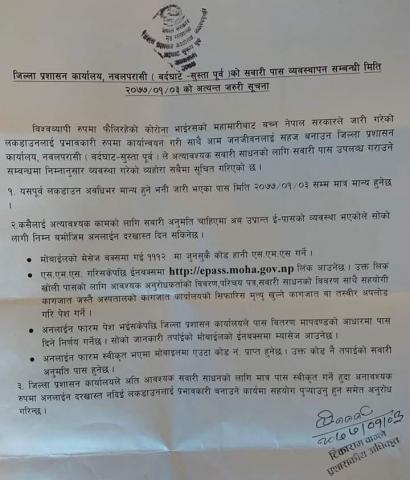 जिल्ला प्रशासन कार्यालय, नवलपरासी ( बर्दघाट -सुस्ता पूर्व )को सवारी पास व्यवस्थापन सम्बन्धी मिति
२०७७/०१/०३ को अत्यन्त जरुरी सूचना
विश्वव्यापी रुपमा फैलिरहेको कोरोना भाईरसको महामारीबाट बच्न नेपाल सरकारले जारी गरेको
लकडाउनलाई प्रभावकारी रुपमा कार्यान्वयन गरी साथै आम जनजीवनलाई सहज बनाउन जिल्ला प्रशासन
कार्यालय, नवलपरासी ( बर्दघाट -सुस्ता पूर्व ) ले अत्यावश्यक सवारी साधनको लागि सवारी पास उपलब्ध गराउने
सम्बन्धमा निम्नानुसार व्यवस्था गरेको व्यहोरा सबैमा सूचित गरिएको छ।
१. यसपूर्व लकडाउन अवधिभर मान्य हुने भनी जारी भएका पास मिति २०७७/०१/०३ सम्म मात्र मान्य हुनेछ
।
२.कसैलाई अत्यावश्यक कामको लागि सवारी अनुमति चाहिएमा अब उप्रान्त ई-पासको व्यवस्था भएकोले सोको
लागी निम्न बमोजिम अनलाईन दरखास्त दिन सकिनेछ ।
• मोबाईलको मेसेज बक्समा गई १११२ मा जुनसुकै कोड हानी एस.एम.एस गर्ने ।
• एस.एम.एस. गरिसकेपछि ईनबक्समा http://epass.moha.gov.np लिंक आउनेछ । उक्त लिंक
खोली पासको लागि आवश्यक अनुरोधकर्ताको विवरण,परिचय पत्र,सवारी साधनको विवरण साथै सहयोगी
कागजात जस्तै अस्पतालको कागजात कार्यालयको सिफारिस मृत्यु खुल्ने कागजात वा तस्वीर अपलोड
गरि पेश गर्ने ।
• अनलाईन फारम पेश भईसकेपछि जिल्ला प्रशासन कार्यालयले पास वितरण मापदण्डको आधारमा पास
दिने निर्णय गर्नेछ । सोको जानकारी तपाईको मोबाईलको ईनबक्समा म्यासेज आउनेछ ।
• अनलाईन फारम स्वीकृत भएमा मोबाईलमा एउटा कोड नं. प्राप्त हुनेछ । उक्त कोड नै तपाईको सवारी
अनुमति पास हुनेछ ।
३. जिल्ला प्रशासन कार्यालयले अति आवश्यक सवारी साधनको लागि मात्र पास स्वीकृत गर्ने हुदा अनावश्यक
रुपमा अनलाईन दरखास्त नदिई लकडाउनलाई प्रभावकारी बनाउने कार्यमा सहयोग पुऱ्याउनु हुन समेत अनुरोध
गरिन्छ ।
२०७७/०१/०३
टिकाराम
प्रशासकीय अधिकृत